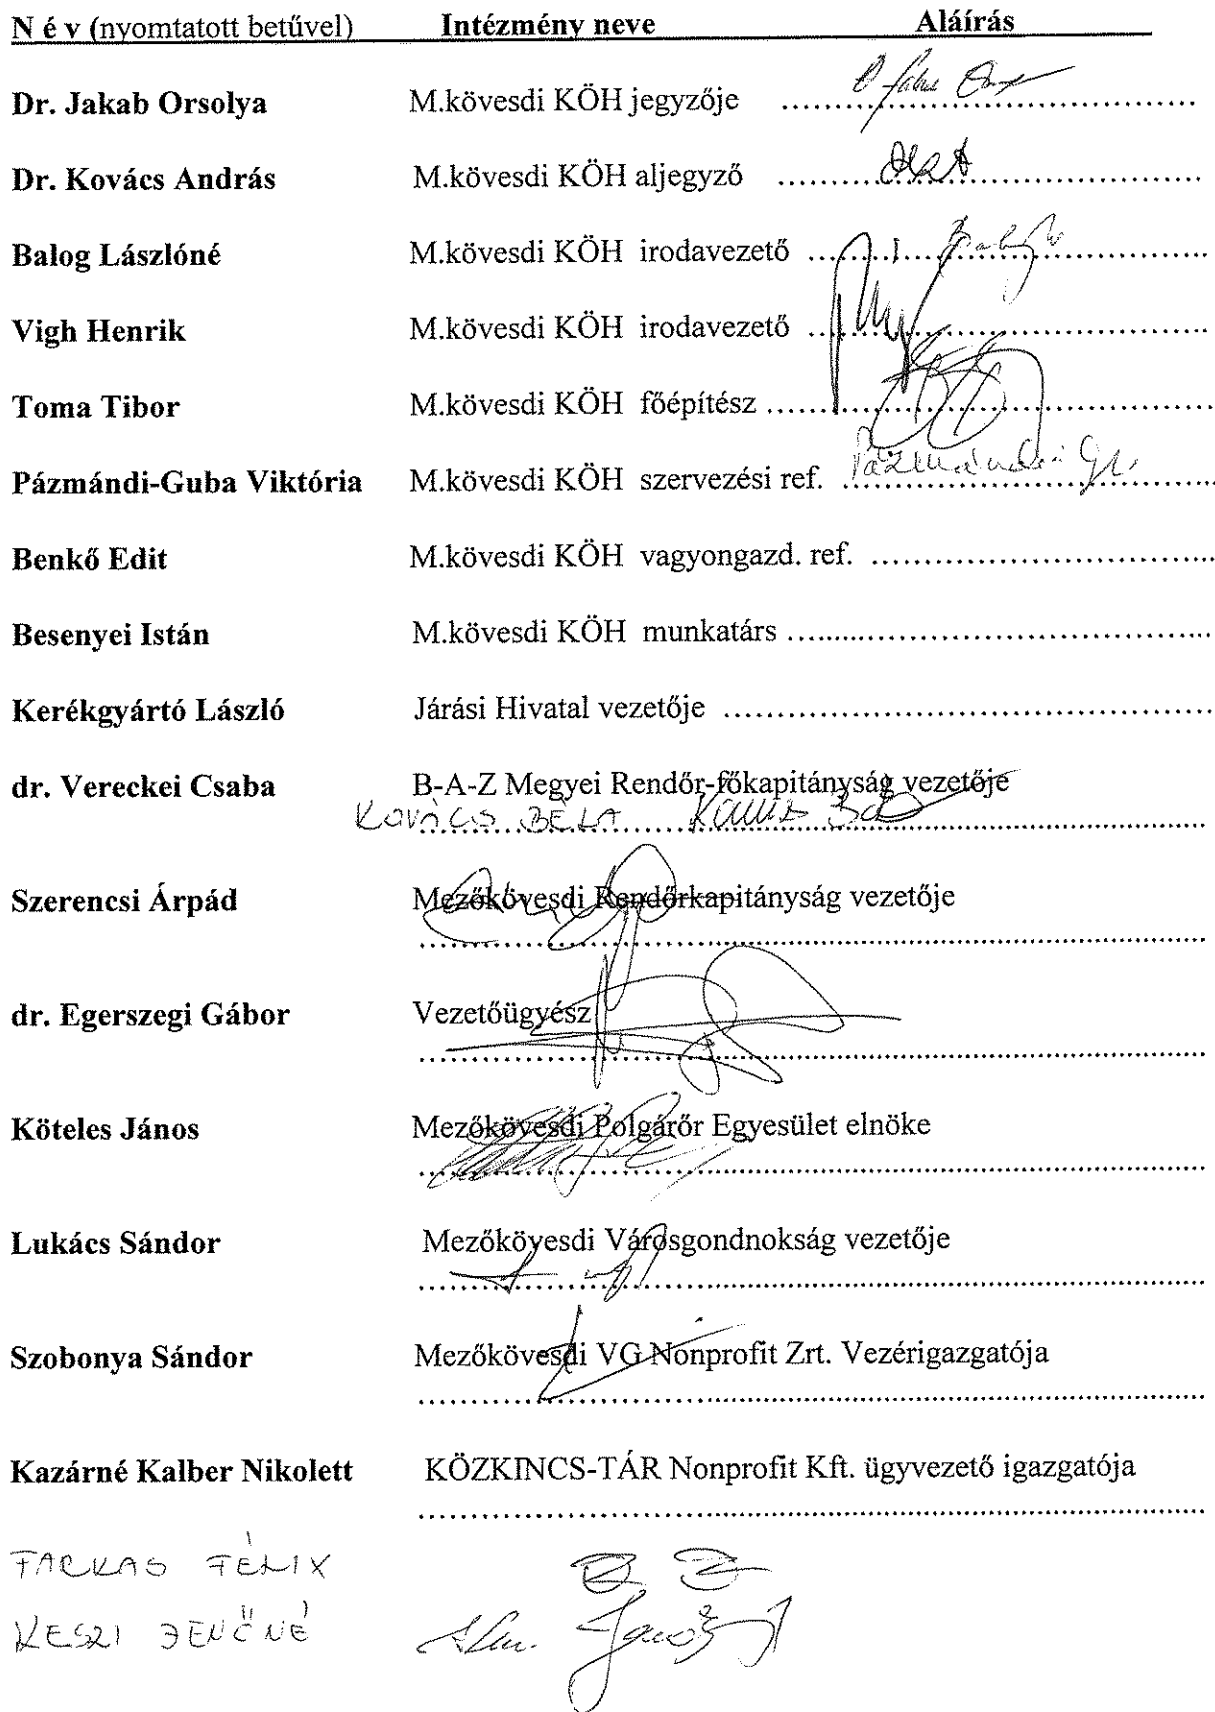 N é v (nyomtatott betűvel) Intézmény neve Aláírás
Dr. Jakab Orsolya M.kövesdi KÖH jegyzője ..........
Dr. Kovács András M.kövesdi KÖH aljegyző ..........
Balog Lászlóné M.kövesdi KÖH irodavezető ..........
Vigh Henrik M.kövesdi KÖH irodavezető ..........
Toma Tibor M.kövesdi KÖH főépítész ..........
Pázmándi-Guba Viktória M.kövesdi KÖH szervezési ref. Pázmándi G.
Benkő Edit M.kövesdi KÖH vagyongazd. ref. ..........
Besenyei Istán M.kövesdi KÖH munkatárs ..........
Kerékgyártó László Járási Hivatal vezetője ..........
dr. Vereckei Csaba B-A-Z Megyei Rendőr-főkapitányság vezetője
KOVÁCS BÉLA
Szerencsi Árpád Mezőkövesdi Rendőrkapitányság vezetője
dr. Egerszegi Gábor Vezetőügyész
Köteles János Mezőkövesdi Polgárőr Egyesület elnöke
Lukács Sándor Mezőkövesdi Városgondnokság vezetője
Szobonya Sándor Mezőkövesdi VG Nonprofit Zrt. Vezérigazgatója
Kazárné Kalber Nikolett KÖZKINCS-TÁR Nonprofit Kft. ügyvezető igazgatója
FARKAS FÉLIX
KESZI JENŐNÉ